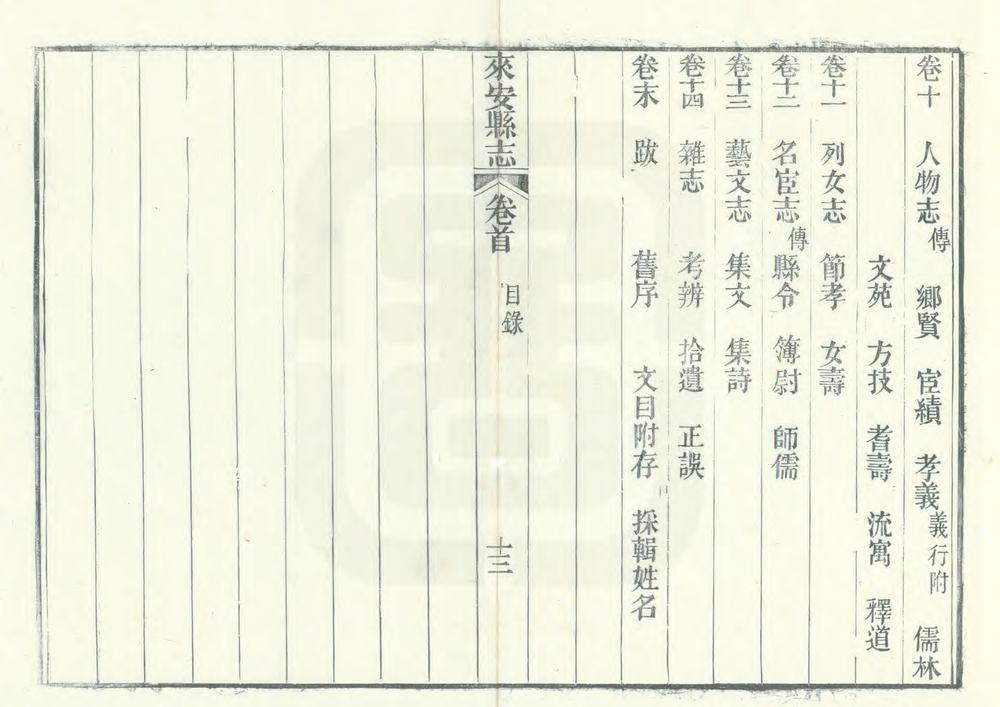 卷十 人物志 傳 鄉賢 宦績 孝義 義行附 儒林
文苑 方技 耆壽 流寓 釋道
卷十一 列女志 節孝 女壽
卷十二 名宦志 傳 縣令 簿尉 師儒
卷十三 藝文志 集文 集詩
卷十四 雜志 考辨 拾遺 正誤
卷末 跋 舊序 文目附存 採輯姓名
來安縣志 卷首 目錄 十三